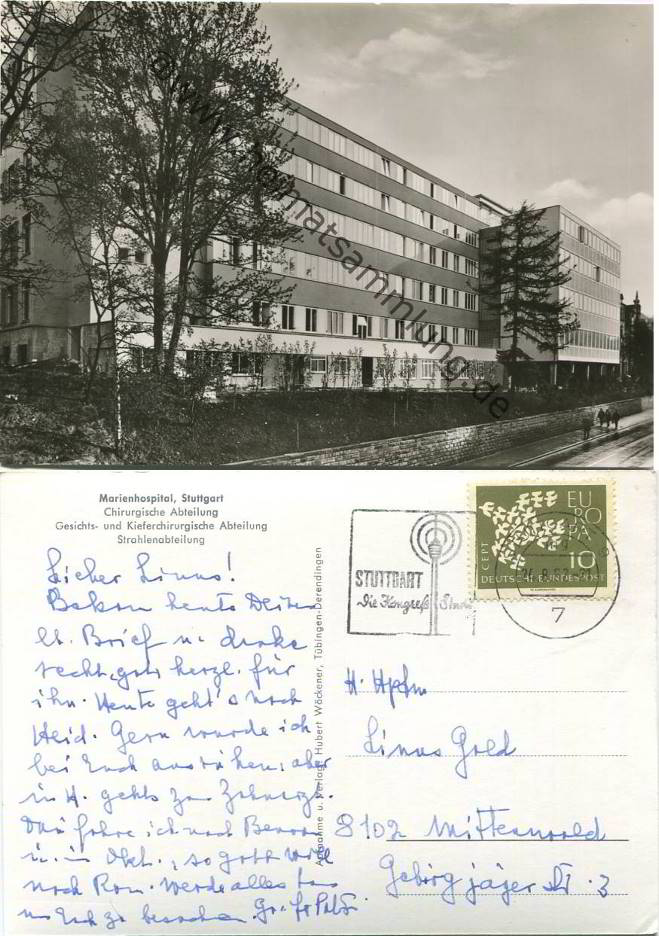 @www.heimatsammlung.de
Marienhospital, Stuttgart
Chirurgische Abteilung
Gesichts- und Kieferchirurgische Abteilung
Strahlenabteilung
STUTTGART
Die Kongreß
EUROPA
CEPT
10
DEUTSCHE BUNDESPOST
7
Aufnahme u. Verlag: Hubert Wöckener, Tübingen-Derendingen
Lieber Linus!
Bekam heute Deinen
lb. Brief u. danke
recht herzl. für
ihn. Heute geht's nach
Heid. Gern würde ich
bei Euch ausruhen, aber
in H. gehts zum
Dan fahre ich nach
u. im Okt., so Gott will
nach Rom. Werde alles
um Euch zu besuchen. Gr.
H. Hptm
Linus Gold
8102 Mittenwald
Gebirgsjäger St. 3